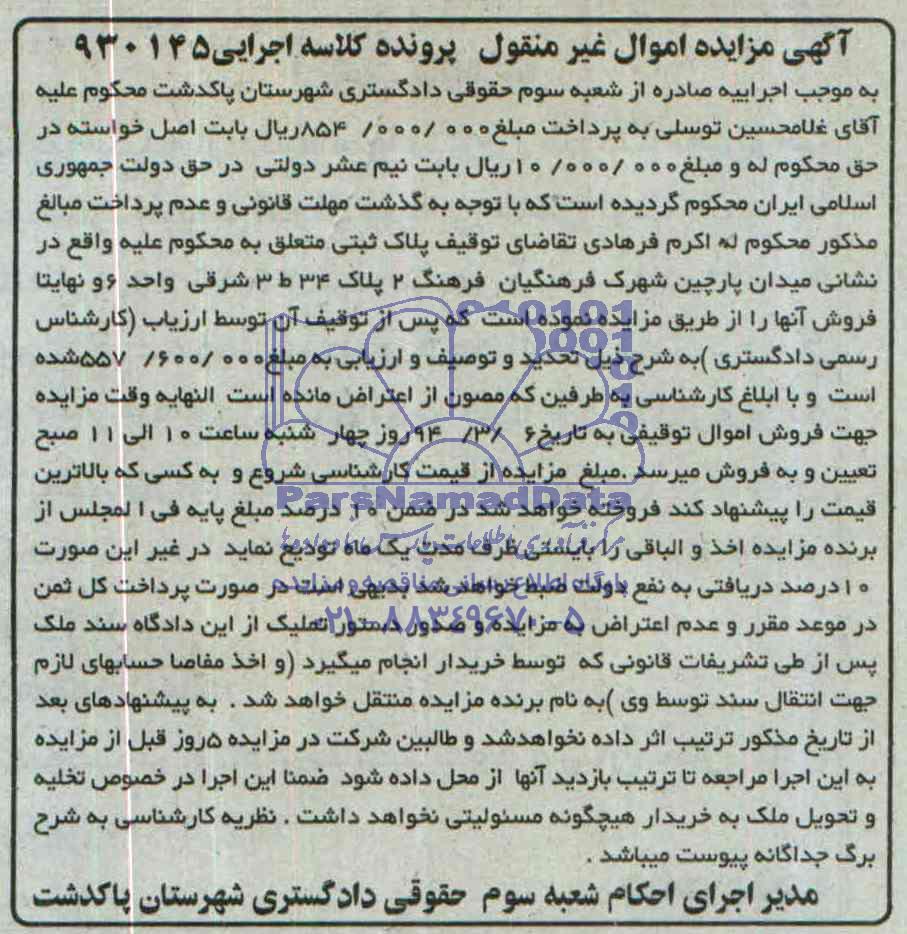 آگهی مزایده اموال غیر منقول پرونده کلاسه اجرایی۹۳۰۱۴۵
به موجب اجراییه صادره از شعبه سوم حقوقی دادگستری شهرستان پاکدشت محکوم علیه
آقای غلامحسین توسلی به پرداخت مبلغ۸۵۴/۰۰۰/۰۰۰ریال بابت اصل خواسته در
حق محکوم له و مبلغ۱۰/۰۰۰/۰۰۰ریال بابت نیم عشر دولتی در حق دولت جمهوری
اسلامی ایران محکوم گردیده است که با توجه به گذشت مهلت قانونی و عدم پرداخت مبالغ
مذکور محکوم له اکرم فرهادی تقاضای توقیف پلاک ثبتی متعلق به محکوم علیه واقع در
نشانی میدان پارچین شهرک فرهنگیان فرهنگ ۲ پلاک ۳۴ ط ۳ شرقی واحد ۶و نهایتا
فروش آنها را از طریق مزایده نموده است که پس از توقیف آن توسط ارزیاب (کارشناس
رسمی دادگستری )به شرح ذیل تحدید و توصیف و ارزیابی به مبلغ۵۵۷/۶۰۰/۰۰۰شده
است و با ابلاغ کارشناسی به طرفین که مصون از اعتراض مانده است النهایه وقت مزایده
جهت فروش اموال توقیفی به تاریخ۶ /۳/ ۹۴روز چهار شنبه ساعت ۱۰ الی ۱۱ صبح
تعیین و به فروش میرسد .مبلغ مزایده از قیمت کارشناسی شروع و به کسی که بالاترین
قیمت را پیشنهاد کند فروخته خواهد شد در ضمن ۱۰ درصد مبلغ پایه فی ا لمجلس از
برنده مزایده اخذ و الباقی را بایستی ظرف مدت یک ماه تودیع نماید در غیر این صورت
۱۰درصد دریافتی به نفع دولت ضبط خواهد شد بدیهی است در صورت پرداخت کل ثمن
در موعد مقرر و عدم اعتراض به مزایده و صدور دستور تملیک از این دادگاه سند ملک
پس از طی تشریفات قانونی که توسط خریدار انجام میگیرد (و اخذ مفاصا حسابهای لازم
جهت انتقال سند توسط وی )به نام برنده مزایده منتقل خواهد شد . به پیشنهادهای بعد
از تاریخ مذکور ترتیب اثر داده نخواهدشد و طالبین شرکت در مزایده ۵روز قبل از مزایده
به این اجرا مراجعه تا ترتیب بازدید آنها از محل داده شود ضمنا این اجرا در خصوص تخلیه
و تحویل ملک به خریدار هیچگونه مسئولیتی نخواهد داشت . نظریه کارشناسی به شرح
برگ جداگانه پیوست میباشد .
مدیر اجرای احکام شعبه سوم حقوقی دادگستری شهرستان پاکدشت
ParsNamadData
پایگاه اطلاع رسانی مناقصه و مزایده
۰۲۱-۸۸۳۴۹۶۷۰-۵